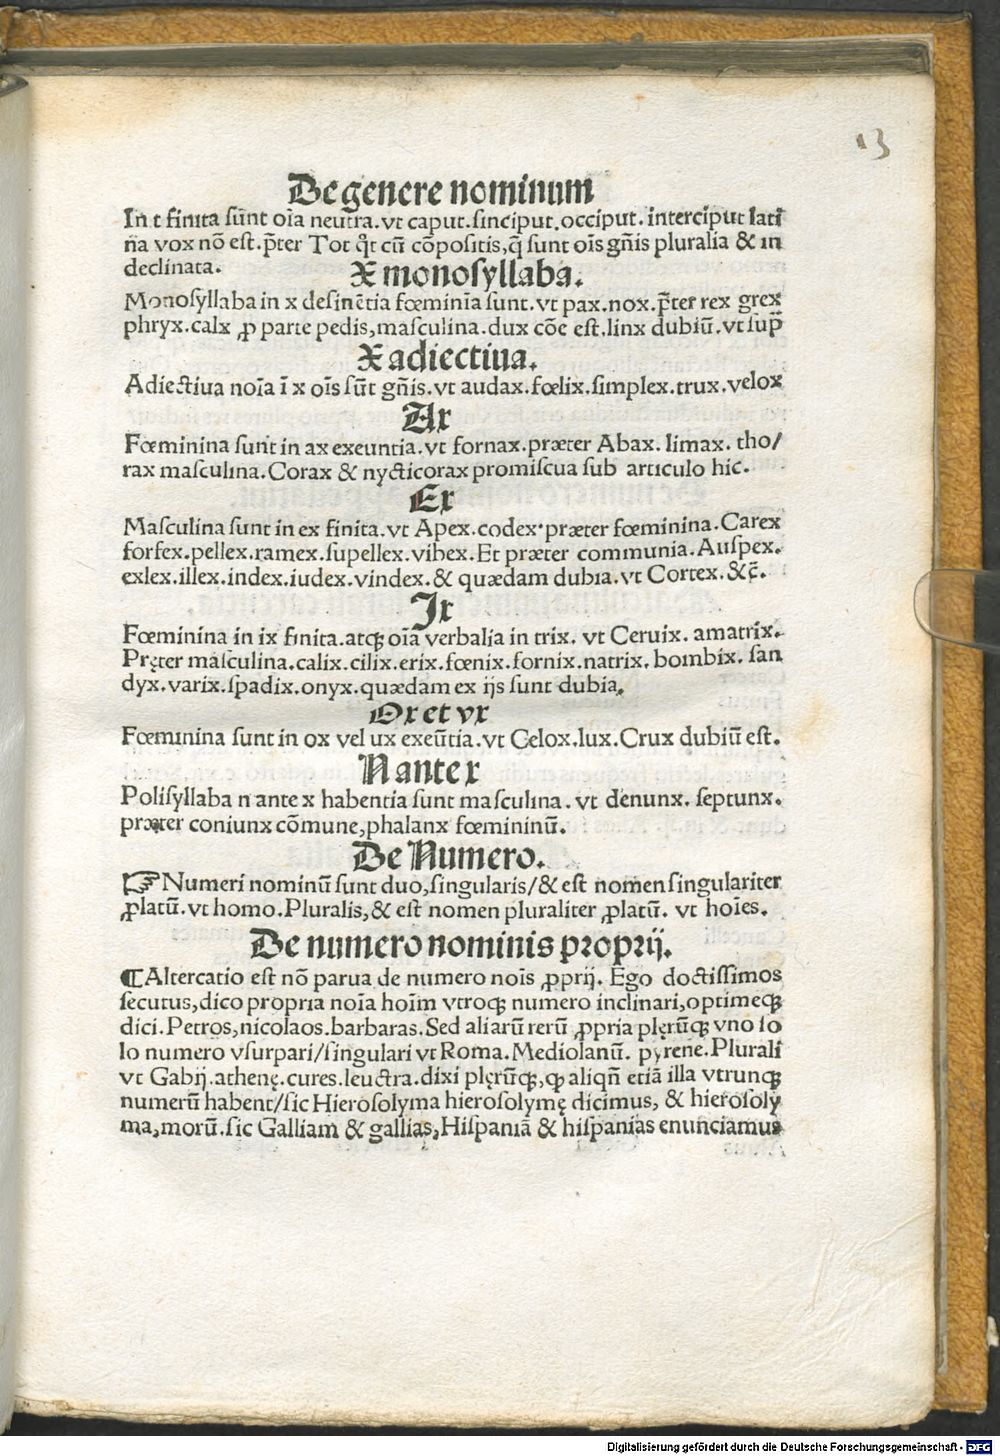 13
De genere nominum
In t finita sūnt oīa neutra. vt caput. sinciput. occiput. interciput lati
na vox nō est. p̄ter Tot q̄t cū cōpositis, q̄ sunt oīs gn̄is pluralia & in
declinata.
X monosyllaba.
Monosyllaba in x desinētia fœminīa sunt. vt pax. nox. p̄ter rex grex
phryx. calx ꝓ parte pedis, masculina. dux cōe est. linx dubiū. vt sup̄
X adiectiua.
Adiectiua noīa ī x oīs sūt gn̄is. vt audax. fœlix. simplex. trux. velox
Ax
Fœminina sunt in ax exeuntia. vt fornax. præter Abax. limax. tho/
rax masculina. Corax & nycticorax promiscua sub articulo hic.
Ex
Masculina sunt in ex finita. vt Apex. codex. præter fœminina. Carex
forfex. pellex. ramex. supellex. vibex. Et præter communia. Auspex.
exlex. illex. index. iudex. vindex. & quædam dubia. vt Cortex. &c̄.
Ix
Fœminina in ix finita. atqꝫ oīa verbalia in trix. vt Ceruix. amatrix.
Pręter masculina. calix. cilix. erix. fœnix. fornix. natrix. bombix. san
dyx. varix. spadix. onyx. quædam ex ijs sunt dubia.
Ox et vx
Fœminina sunt in ox vel ux exeūtia. vt Celox. lux. Crux dubiū est.
N ante x
Polisyllaba n ante x habentia sunt masculina. vt denunx. septunx.
præter coniunx cōmune, phalanx fœmininū.
De Numero.
☞ Numeri nominū sunt duo, singularis/ & est nomen singulariter
ꝓlatū. vt homo. Pluralis, & est nomen pluraliter ꝓlatū. vt hoīes.
De numero nominis proprij.
¶ Altercatio est nō parua de numero noīs ꝓprij. Ego doctissimos
secutus, dico propria noīa hoīm vtroqꝫ numero inclinari, optimeqꝫ
dici. Petros, nicolaos. barbaras. Sed aliarū rerū ꝓpria plęrūqꝫ vno so
lo numero vsurpari/ singulari vt Roma. Mediolanū. pyrene. Plurali
vt Gabij. athenę. cures. leuctra. dixi plęrūqꝫ, ꝙ aliqn̄ etiā illa vtrunqꝫ
numerū habent/ sic Hierosolyma hierosolymę dicimus, & hierosoly
ma, morū. sic Galliam & gallias, Hispaniā & hispanias enunciamus
Digitalisierung gefördert durch die Deutsche Forschungsgemeinschaft - DFG